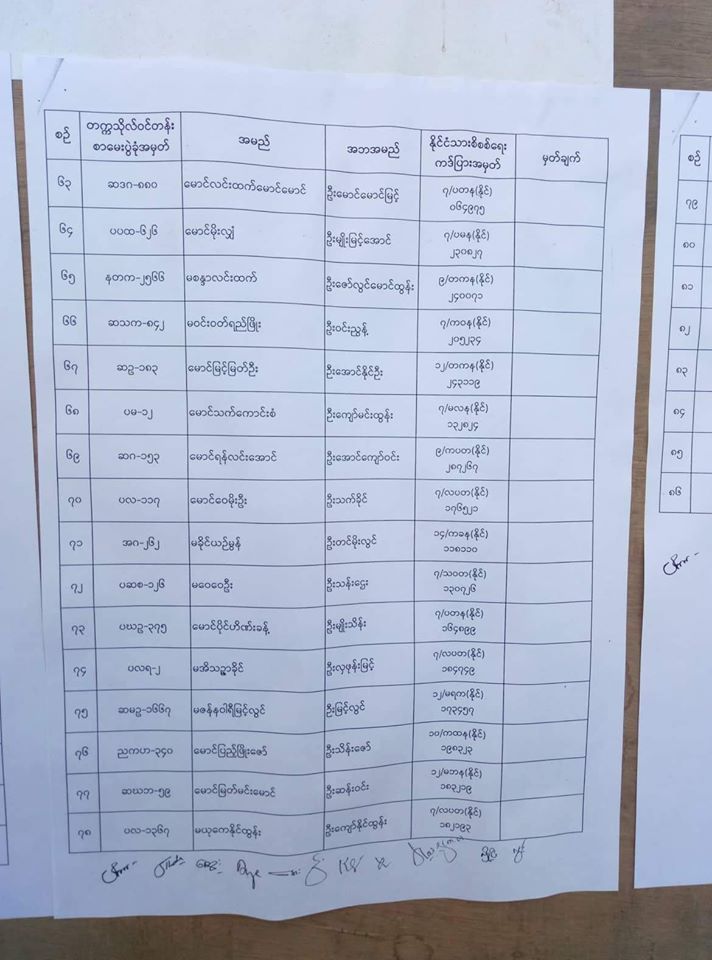 စဉ် တက္ကသိုလ်ဝင်တန်း အမည် အဘအမည် နိုင်ငံသားစိစစ်ရေး မှတ်ချက်
စာမေးပွဲခုံအမှတ် ကဒ်ပြားအမှတ်
၆၃ ဆဒဂ-၈၈၀ မောင်လင်းထက်မောင်မောင် ဦးမောင်မောင်မြင့် ၇/ပတန(နိုင်)
၀၆၄၉၇၅
၆၄ ပပထ-၆၂၆ မောင်မိုးလျှံ ဦးမျိုးမြင့်အောင် ၇/ပမန(နိုင်)
၂၃၀၈၂၇
၆၅ နတက-၂၅၆၆ မစန္ဒာလင်းထက် ဦးဇော်လွင်မောင်ထွန်း ၉/တကန(နိုင်)
၂၄၀၀၇၁
၆၆ ဆသက-၈၄၂ မဝင်းဝတ်ရည်ဖြိုး ဦးဝင်းညွန့် ၇/ကဝန(နိုင်)
၂၀၅၂၃၄
၆၇ ဆဥ-၁၈၃ မောင်မြင့်မြတ်ဦး ဦးအောင်နိုင်ဦး ၁၂/တကန(နိုင်)
၂၄၃၁၁၉
၆၈ ပမ-၁၂ မောင်သက်ကောင်းစံ ဦးကျော်မင်းထွန်း ၇/မလန(နိုင်)
၁၃၂၈၂၄
၆၉ ဆဂ-၁၅၃ မောင်ရန်လင်းအောင် ဦးအောင်ကျော်ဝင်း ၉/ကပတ(နိုင်)
၂၈၇၂၆၇
၇၀ ပလ-၁၁၇ မောင်ဝေမိုးဦး ဦးသက်ခိုင် ၇/လပတ(နိုင်)
၁၇၆၅၂၁
၇၁ အဂ-၂၆၂ မခိုင်ယဉ်မွန် ဦးတင်မိုးလွင် ၁၄/ကခန(နိုင်)
၁၁၈၁၁၀
၇၂ ပဆစ-၁၂၆ မဝေဝေဦး ဦးသန်းဌေး ၇/သဝတ(နိုင်)
၁၃၀၇၂၆
၇၃ ပဃဥ-၃၇၅ မောင်ပိုင်ဟိဏ်းခန့် ဦးမျိုးသိန်း ၇/ပတန(နိုင်)
၁၆၄၈၉၉
၇၄ ပလရ-၂ မအိသဉ္ဇာခိုင် ဦးလှဖုန်းမြင့် ၇/လပတ(နိုင်)
၁၈၄၇၄၉
၇၅ ဆမဥ-၁၆၆၇ မဇန်နဝါရီမြင့်လွင် ဦးမြင့်လွင် ၁၂/မရက(နိုင်)
၁၇၃၄၅၇
၇၆ ညကဟ-၃၄၀ မောင်ပြည့်ဖြိုးဇော် ဦးသိန်းဇော် ၁၀/ကထန(နိုင်)
၁၉၈၃၂၃
၇၇ ဆဃဘ-၅၉ မောင်မြတ်မင်းမောင် ဦးဆန်းဝင်း ၁၂/မဘန(နိုင်)
၁၈၃၂၁၉
၇၈ ပလ-၁၃၆၇ မယုကေနိုင်ထွန်း ဦးကျော်နိုင်ထွန်း ၇/လပတ(နိုင်)
၁၈၂၁၉၃
စဉ်
၇၉
၈၀
၈၁
၈၂
၈၃
၈၄
၈၅
၈၆